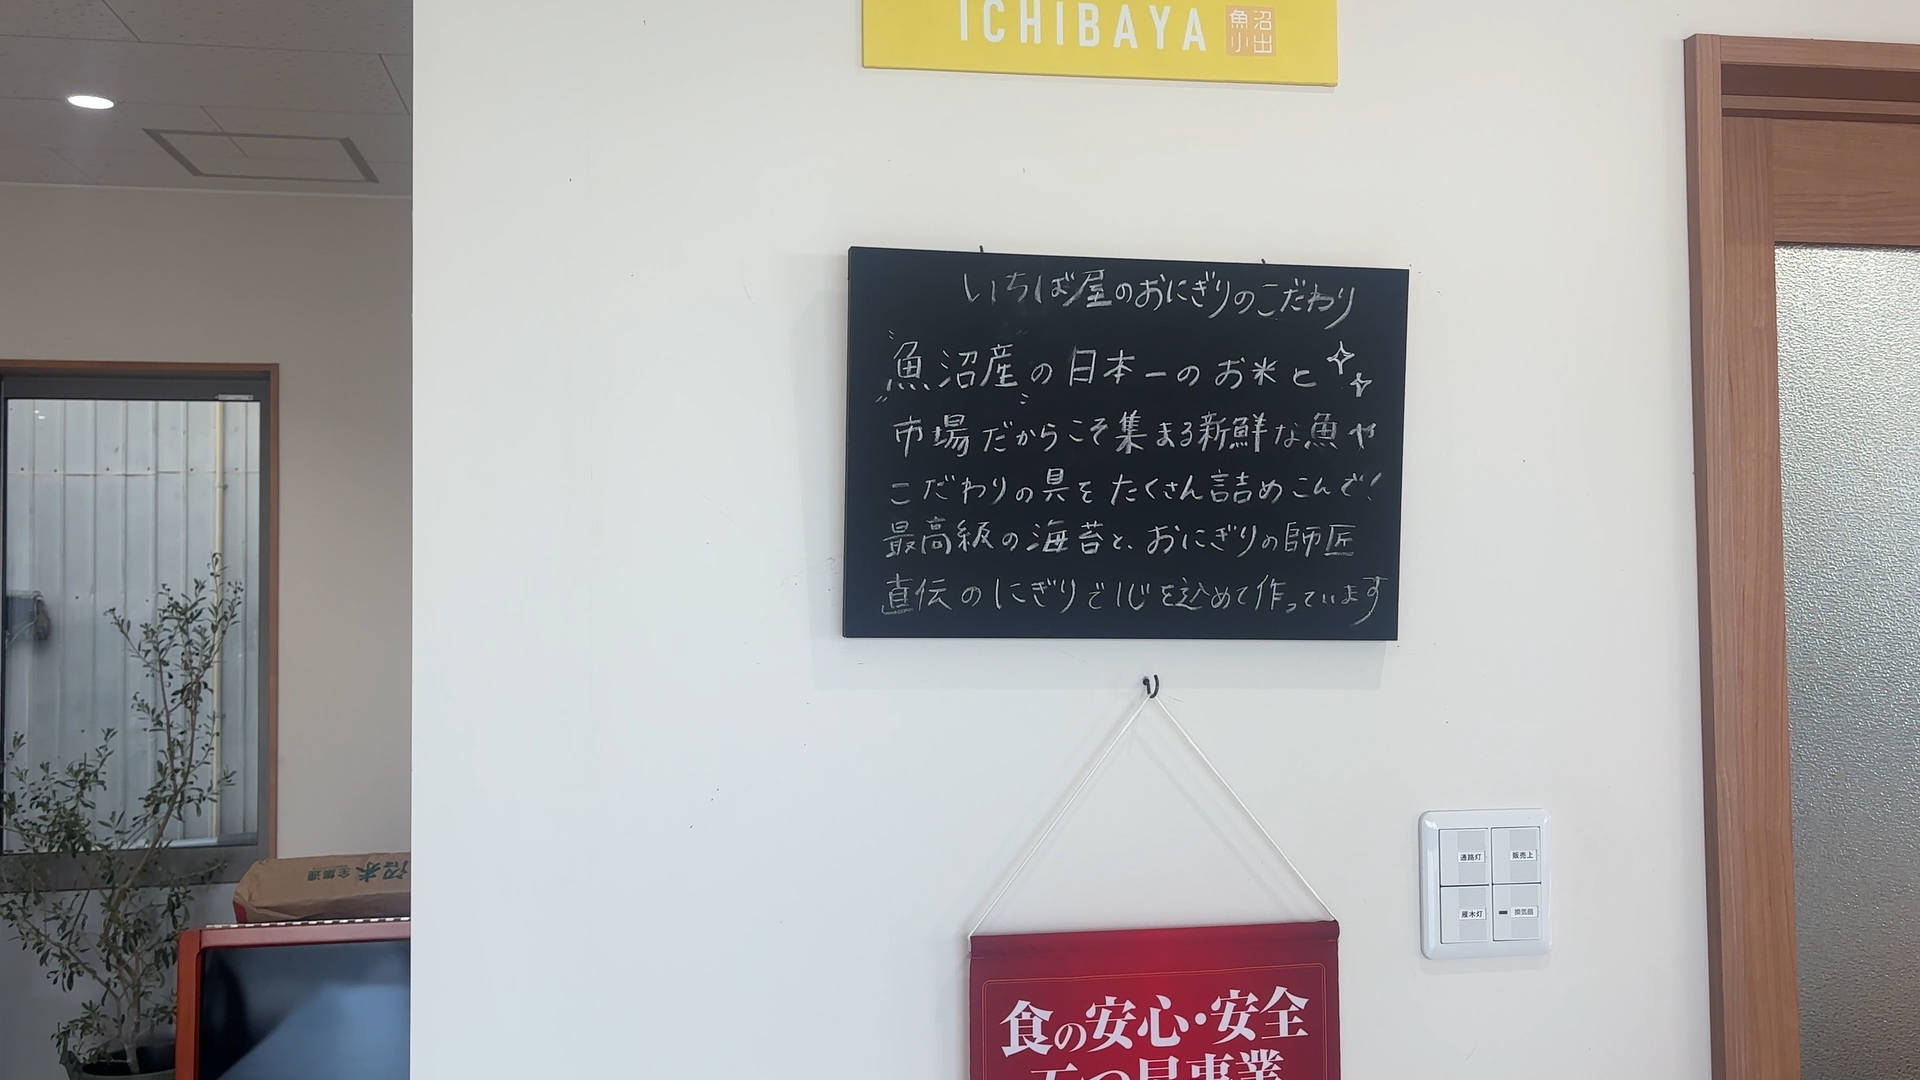 ICHIBAYA 魚沼小出
いちば屋のおにぎりのこだわり
"魚沼産"の日本一のお米と
市場だからこそ集まる新鮮な魚や
こだわりの具をたくさん詰めこんで!
最高級の海苔と、おにぎりの師匠
直伝のにぎりで心を込めて作っています
通路灯 販売上
雁木灯 換気扇
食の安心・安全